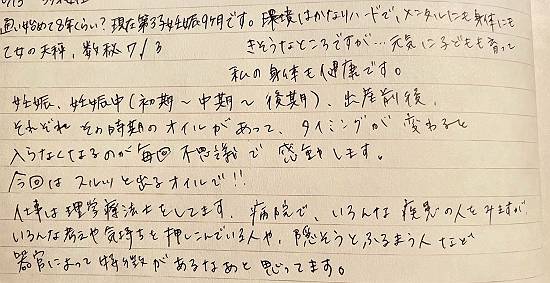 通い始めて8年くらい？現在第3子妊娠9ヶ月です。環境はかなりハードで、メンタルにも身体にも
乙女の天秤、数秘7/3 きそうなところですが…元気に子どもも育って
私の身体も健康です。
妊娠、妊娠中（初期～中期～後期）、出産前後、
それぞれその時期のオイルがあって、タイミングが変わると
入らなくなるのが毎回不思議で感動します。
今回はスルッと出るオイルで!!
仕事は理学療法士をしてます。病院で、いろんな疾患の人をみますが
いろんな考えや気持ちを押しこんでいる人や、隠そうとふるまう人など
器官によって特徴があるなあと思ってます。